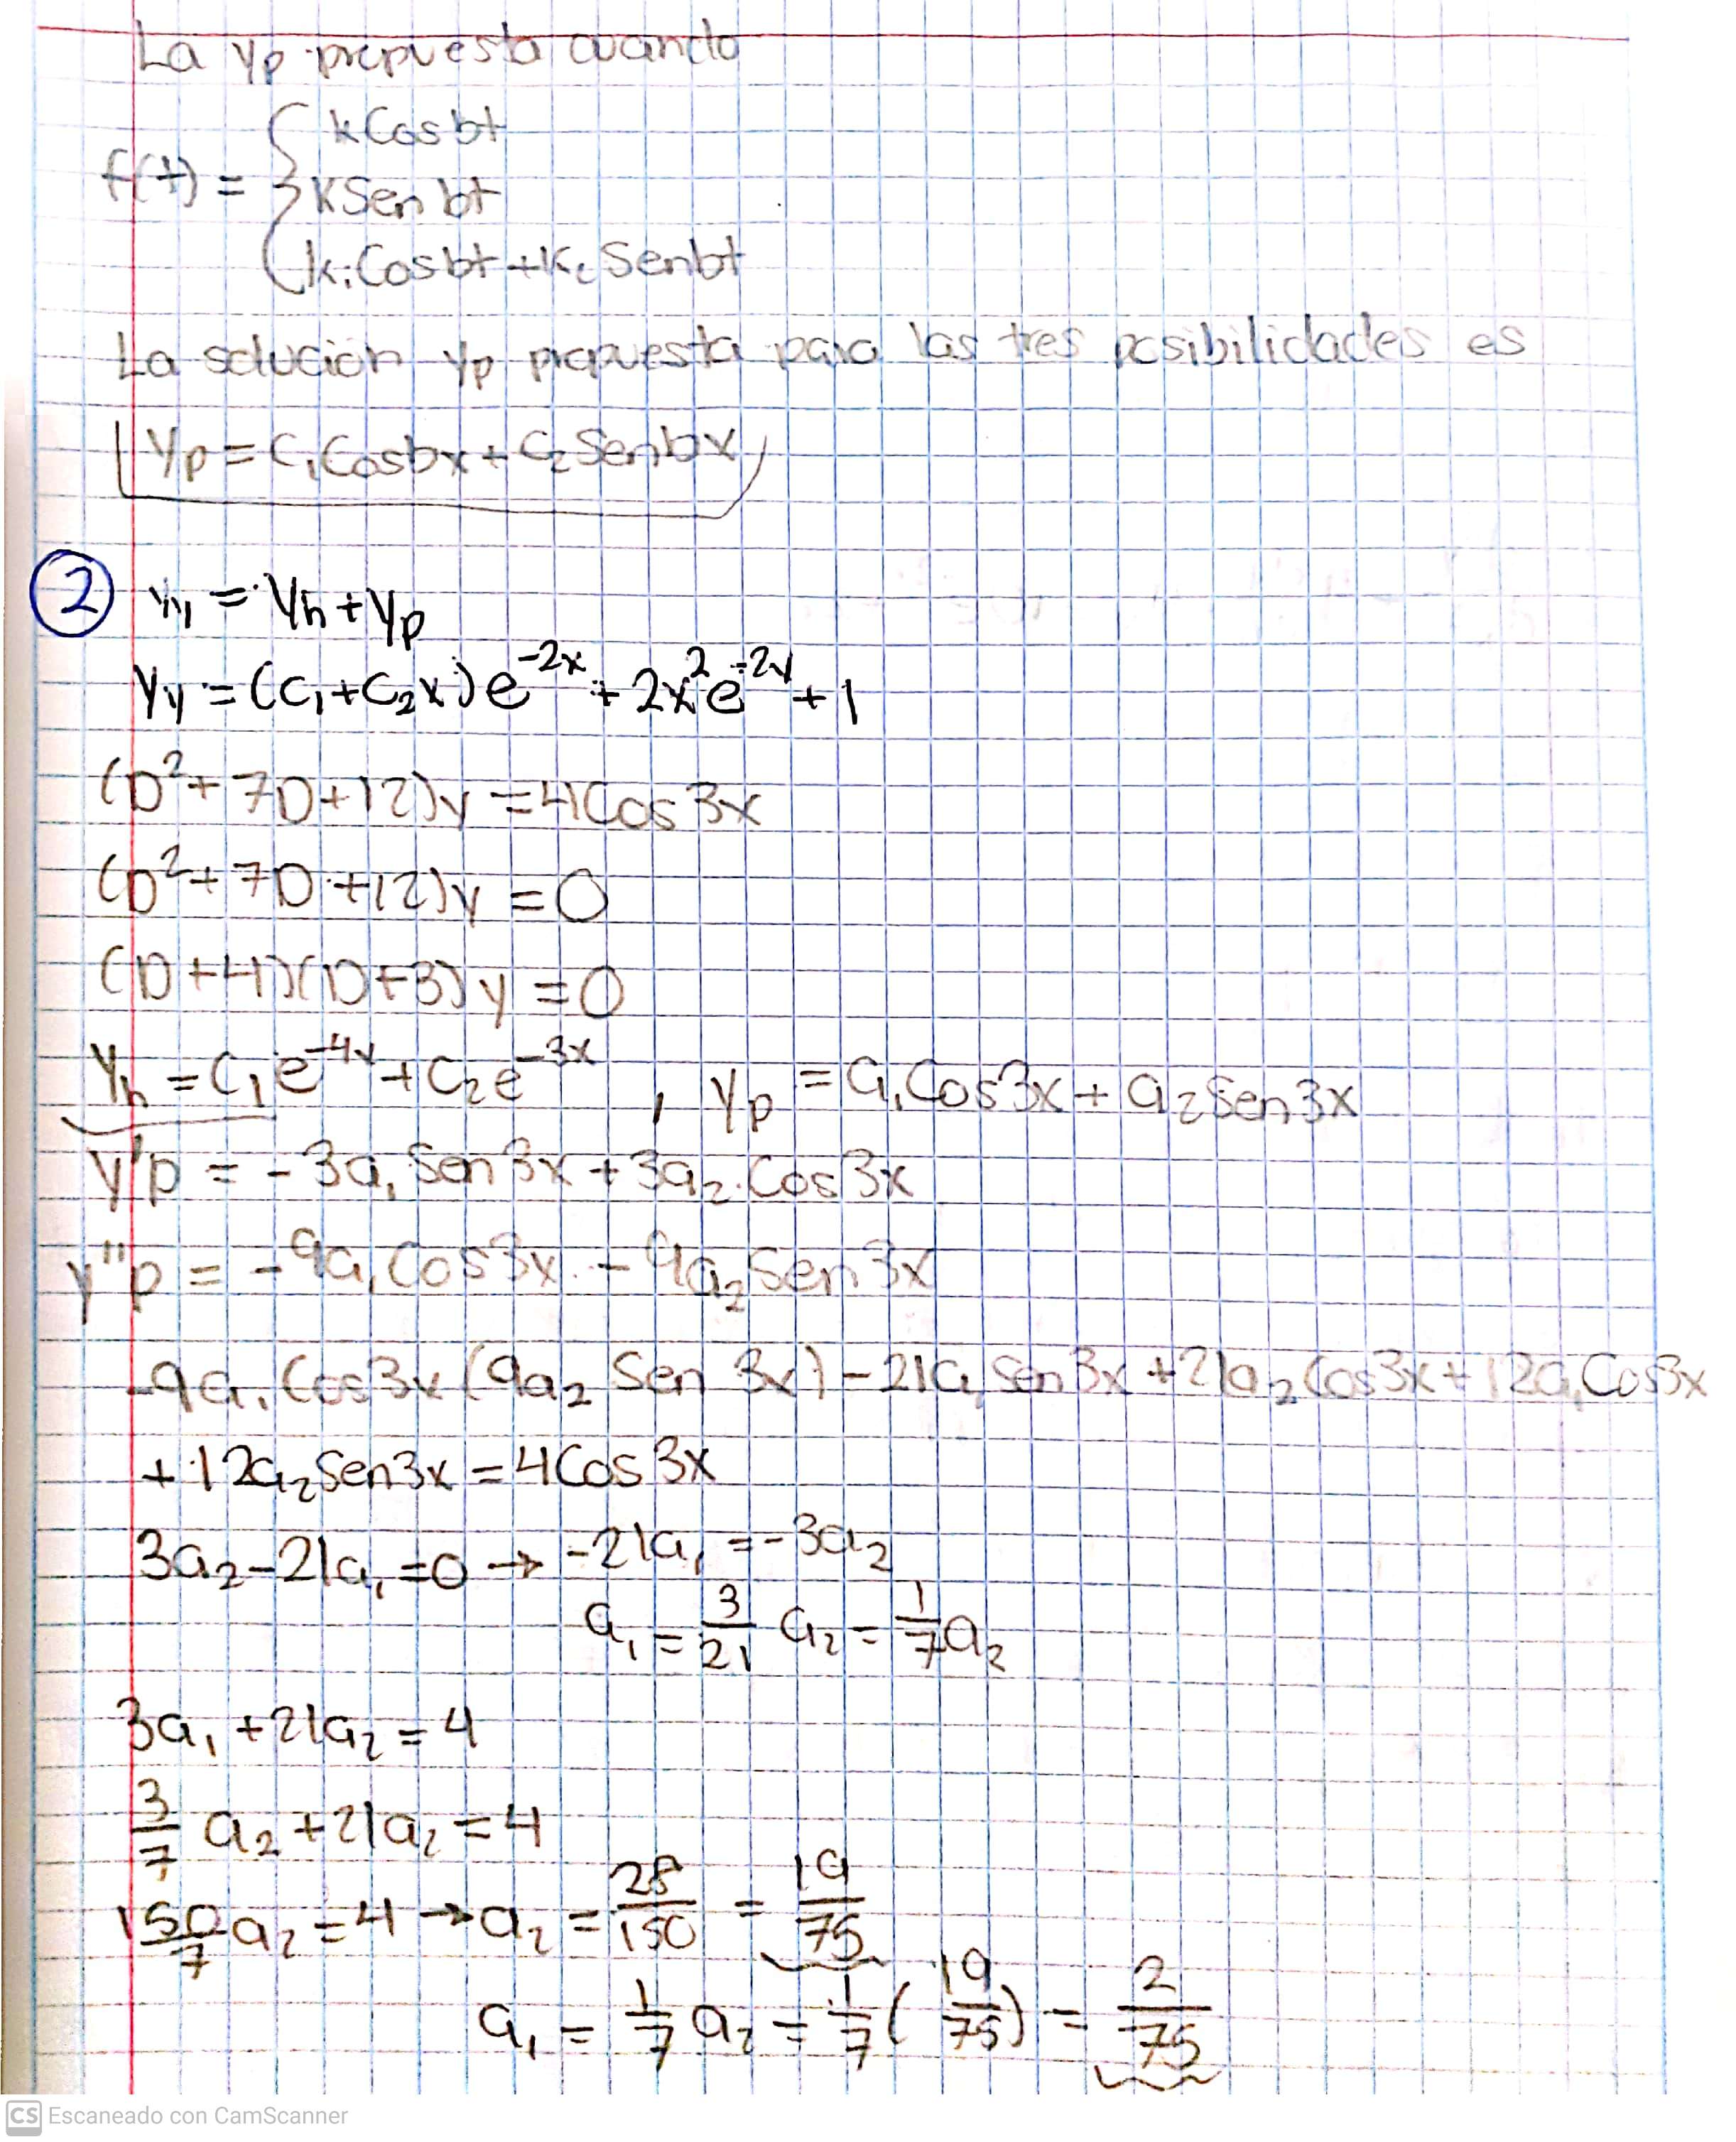 La yp propuesta cuando
f(t) = { k Cos bt
k Sen bt
k₁ Cos bt + k₂ Sen bt
La solución yp propuesta para las tres posibilidades es
yp = C₁ Cos bx + C₂ Sen bx
② yy = yh + yp
yy = (C₁ + C₂x) e^-2x + 2x² e^-2x + 1
(D² + 7D + 12) y = 4 Cos 3x
(D² + 7D + 12) y = 0
(D + 4)(D + 3) y = 0
yh = C₁ e^-4x + C₂ e^-3x , yp = a₁ Cos 3x + a₂ Sen 3x
y'p = -3a₁ Sen 3x + 3a₂ Cos 3x
y''p = -9a₁ Cos 3x - 9a₂ Sen 3x
-9a₁ Cos 3x (9a₂ Sen 3x) - 21a₁ Sen 3x + 21a₂ Cos 3x + 12a₁ Cos 3x
+ 12a₂ Sen 3x = 4 Cos 3x
3a₂ - 21a₁ = 0 → -21a₁ = -3a₂
a₁ = 3/21 a₂ = 1/7 a₂
3a₁ + 21a₂ = 4
3/7 a₂ + 21a₂ = 4
150/7 a₂ = 4 → a₂ = 28/150 = 19/75
a₁ = 1/7 a₂ = 1/7 (19/75) = 2/75
CS Escaneado con CamScanner